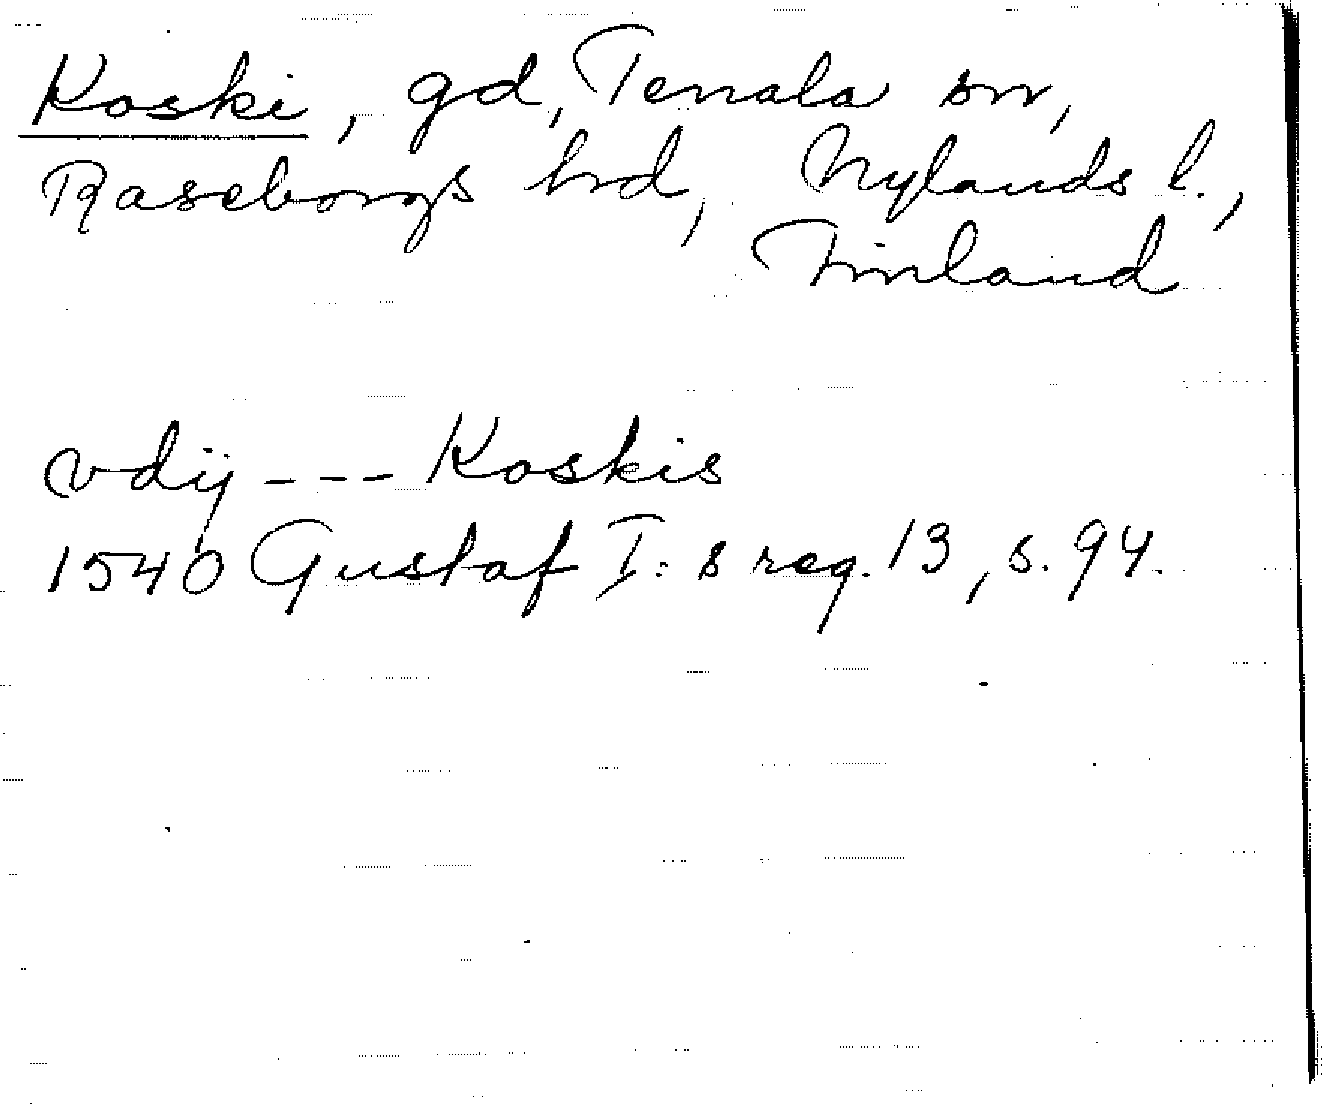 Koski, gd, Tenala sn,
Raseborgs hrd, Nylands l.,
Finland
vdij --- Koskis
1540 Gustaf I: s reg. 13, s. 94.